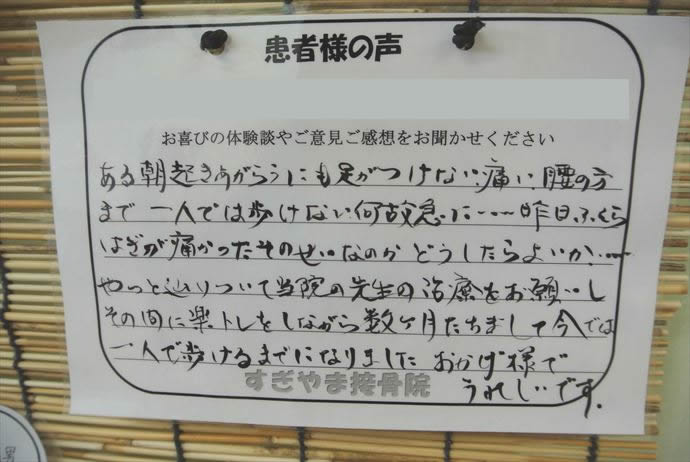 患者様の声
お喜びの体験談やご意見ご感想をお聞かせください
ある朝起きあがろうにも足がつけない痛い腰の方
まで一人では歩けない何故急に……昨日ふくら
はぎが痛かったそのせいなのかどうしたらよいか……
やっと辿りついて当院の先生の治療をお願いし
その間に楽トレをしながら数ヶ月たちまして今では
一人で歩けるまでになりました おかげ様で
うれしいです.
すぎやま接骨院